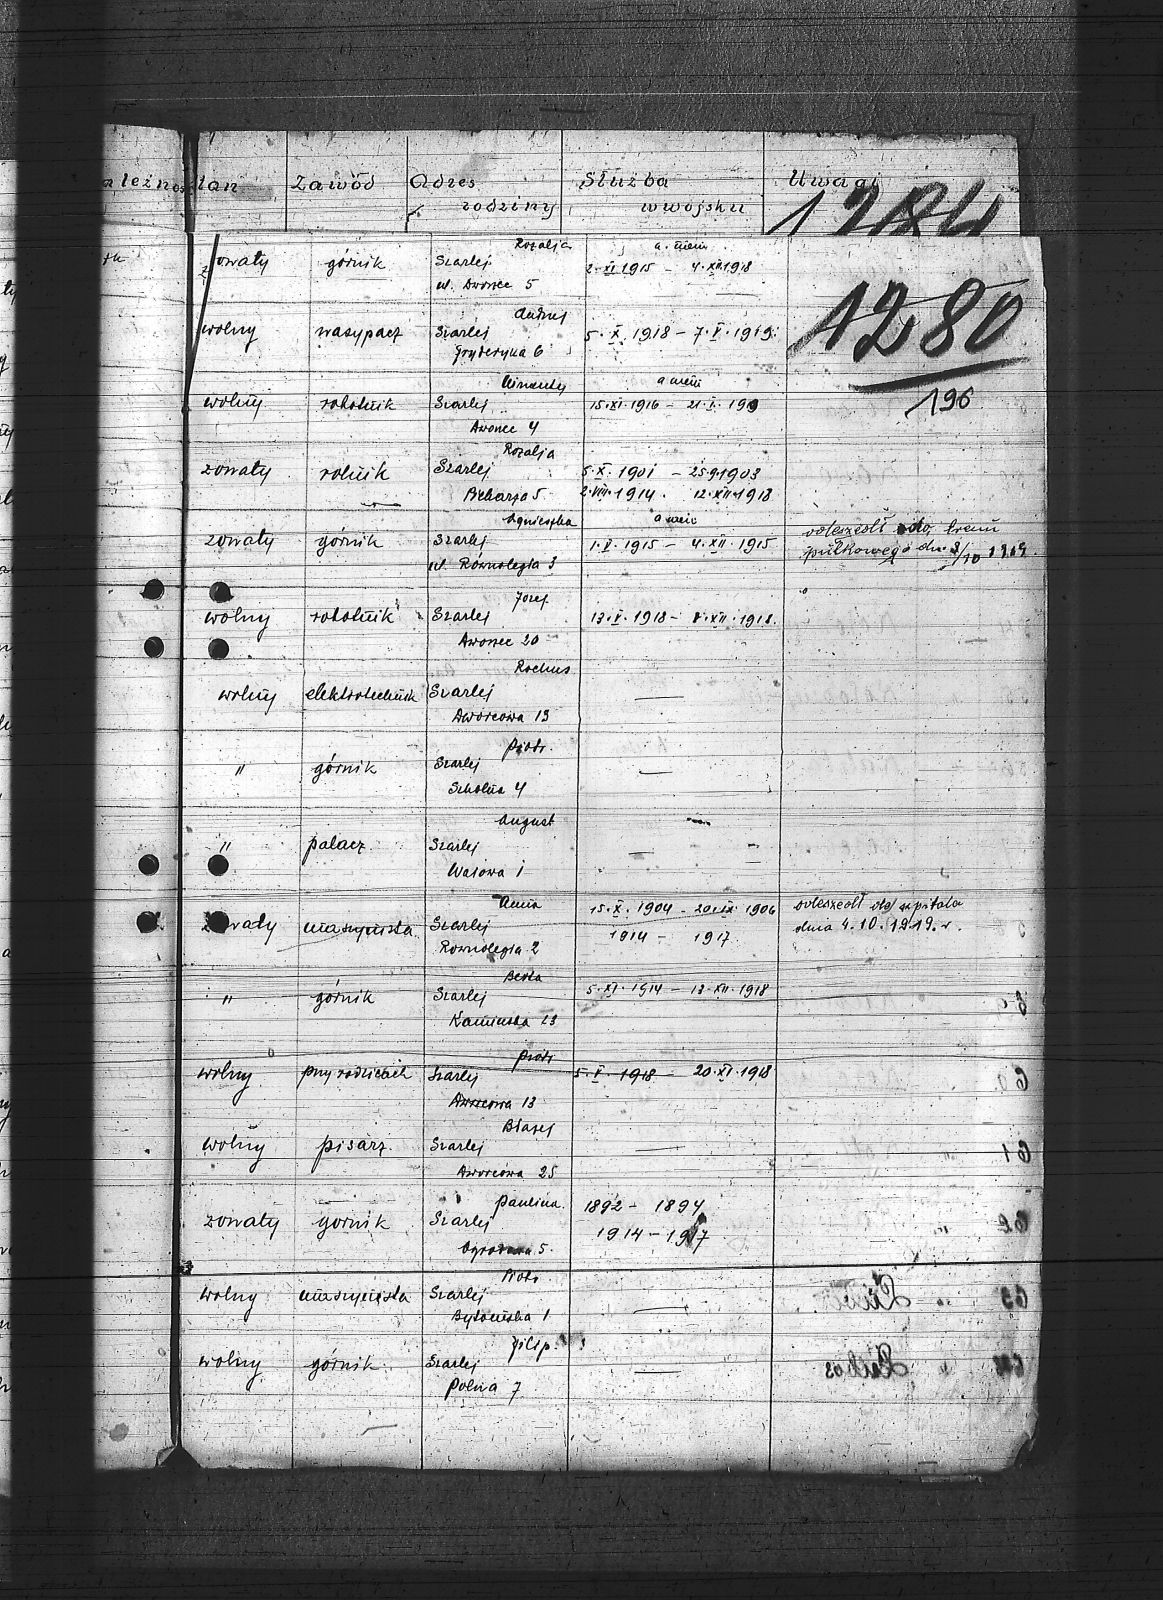 ależność stan Zawód Adres rodziny Służba w wojsku Uwagi
1284
1280
196
żonaty górnik Rozalja a. niem
Szarlej 2.XI.1915 - 4.XII.1918
ul. Dworec 5
Andrzej
wolny zasypacz Szarlej 5.X.1918 - 7.V.1919.
Fryderyka 6
Wincenty a niem
wolny robotnik Szarlej 15.XI.1916 - 21.I.1919
Dworec 4
Rozalja
żonaty rolnik Szarlej 5.X.1901 - 25.9.1903
Piekarska 5 2.VIII.1914. 12.XII.1918
Agnieszka a niem
żonaty górnik Szarlej 1.V.1915 - 4.XII.1915 odeszedł do trenu
ul. Równoległa 3 pułkowego dn. 3/10 1919.
Józef
wolny robotnik Szarlej 13.V.1918 - 8.XII.1918.
Dworec 20
Rochus
wolny elektrotechnik Szarlej —
Dworcowa 13
Piotr.
" górnik Szarlej —
Szkolna 4
August
" palacz. Szarlej — -
Wałowa 1
Anna 15.X.1904 - 20.IX 1906 odeszedł do szpitala
żonaty maszynista Szarlej 1914 - 1917. dnia 4.10.1919.r.
Równoległa 2
Berta
" górnik Szarlej 5.XI.1914 - 13.XII.1918
Kamińska 23
Piotr
wolny przy rodzicach Szarlej 5.V.1918 - 20.XI.1918
Dworcowa 13
Błażej
wolny pisarz Szarlej —
Dworcowa 25
Paulina. 1892 - 1894
żonaty górnik Szarlej 1914 - 1917
Ogrodowa 5.
Piotr
wolny maszynista Szarlej —
Bytomska 1
Filip.
wolny górnik Szarlej —
Polna 7